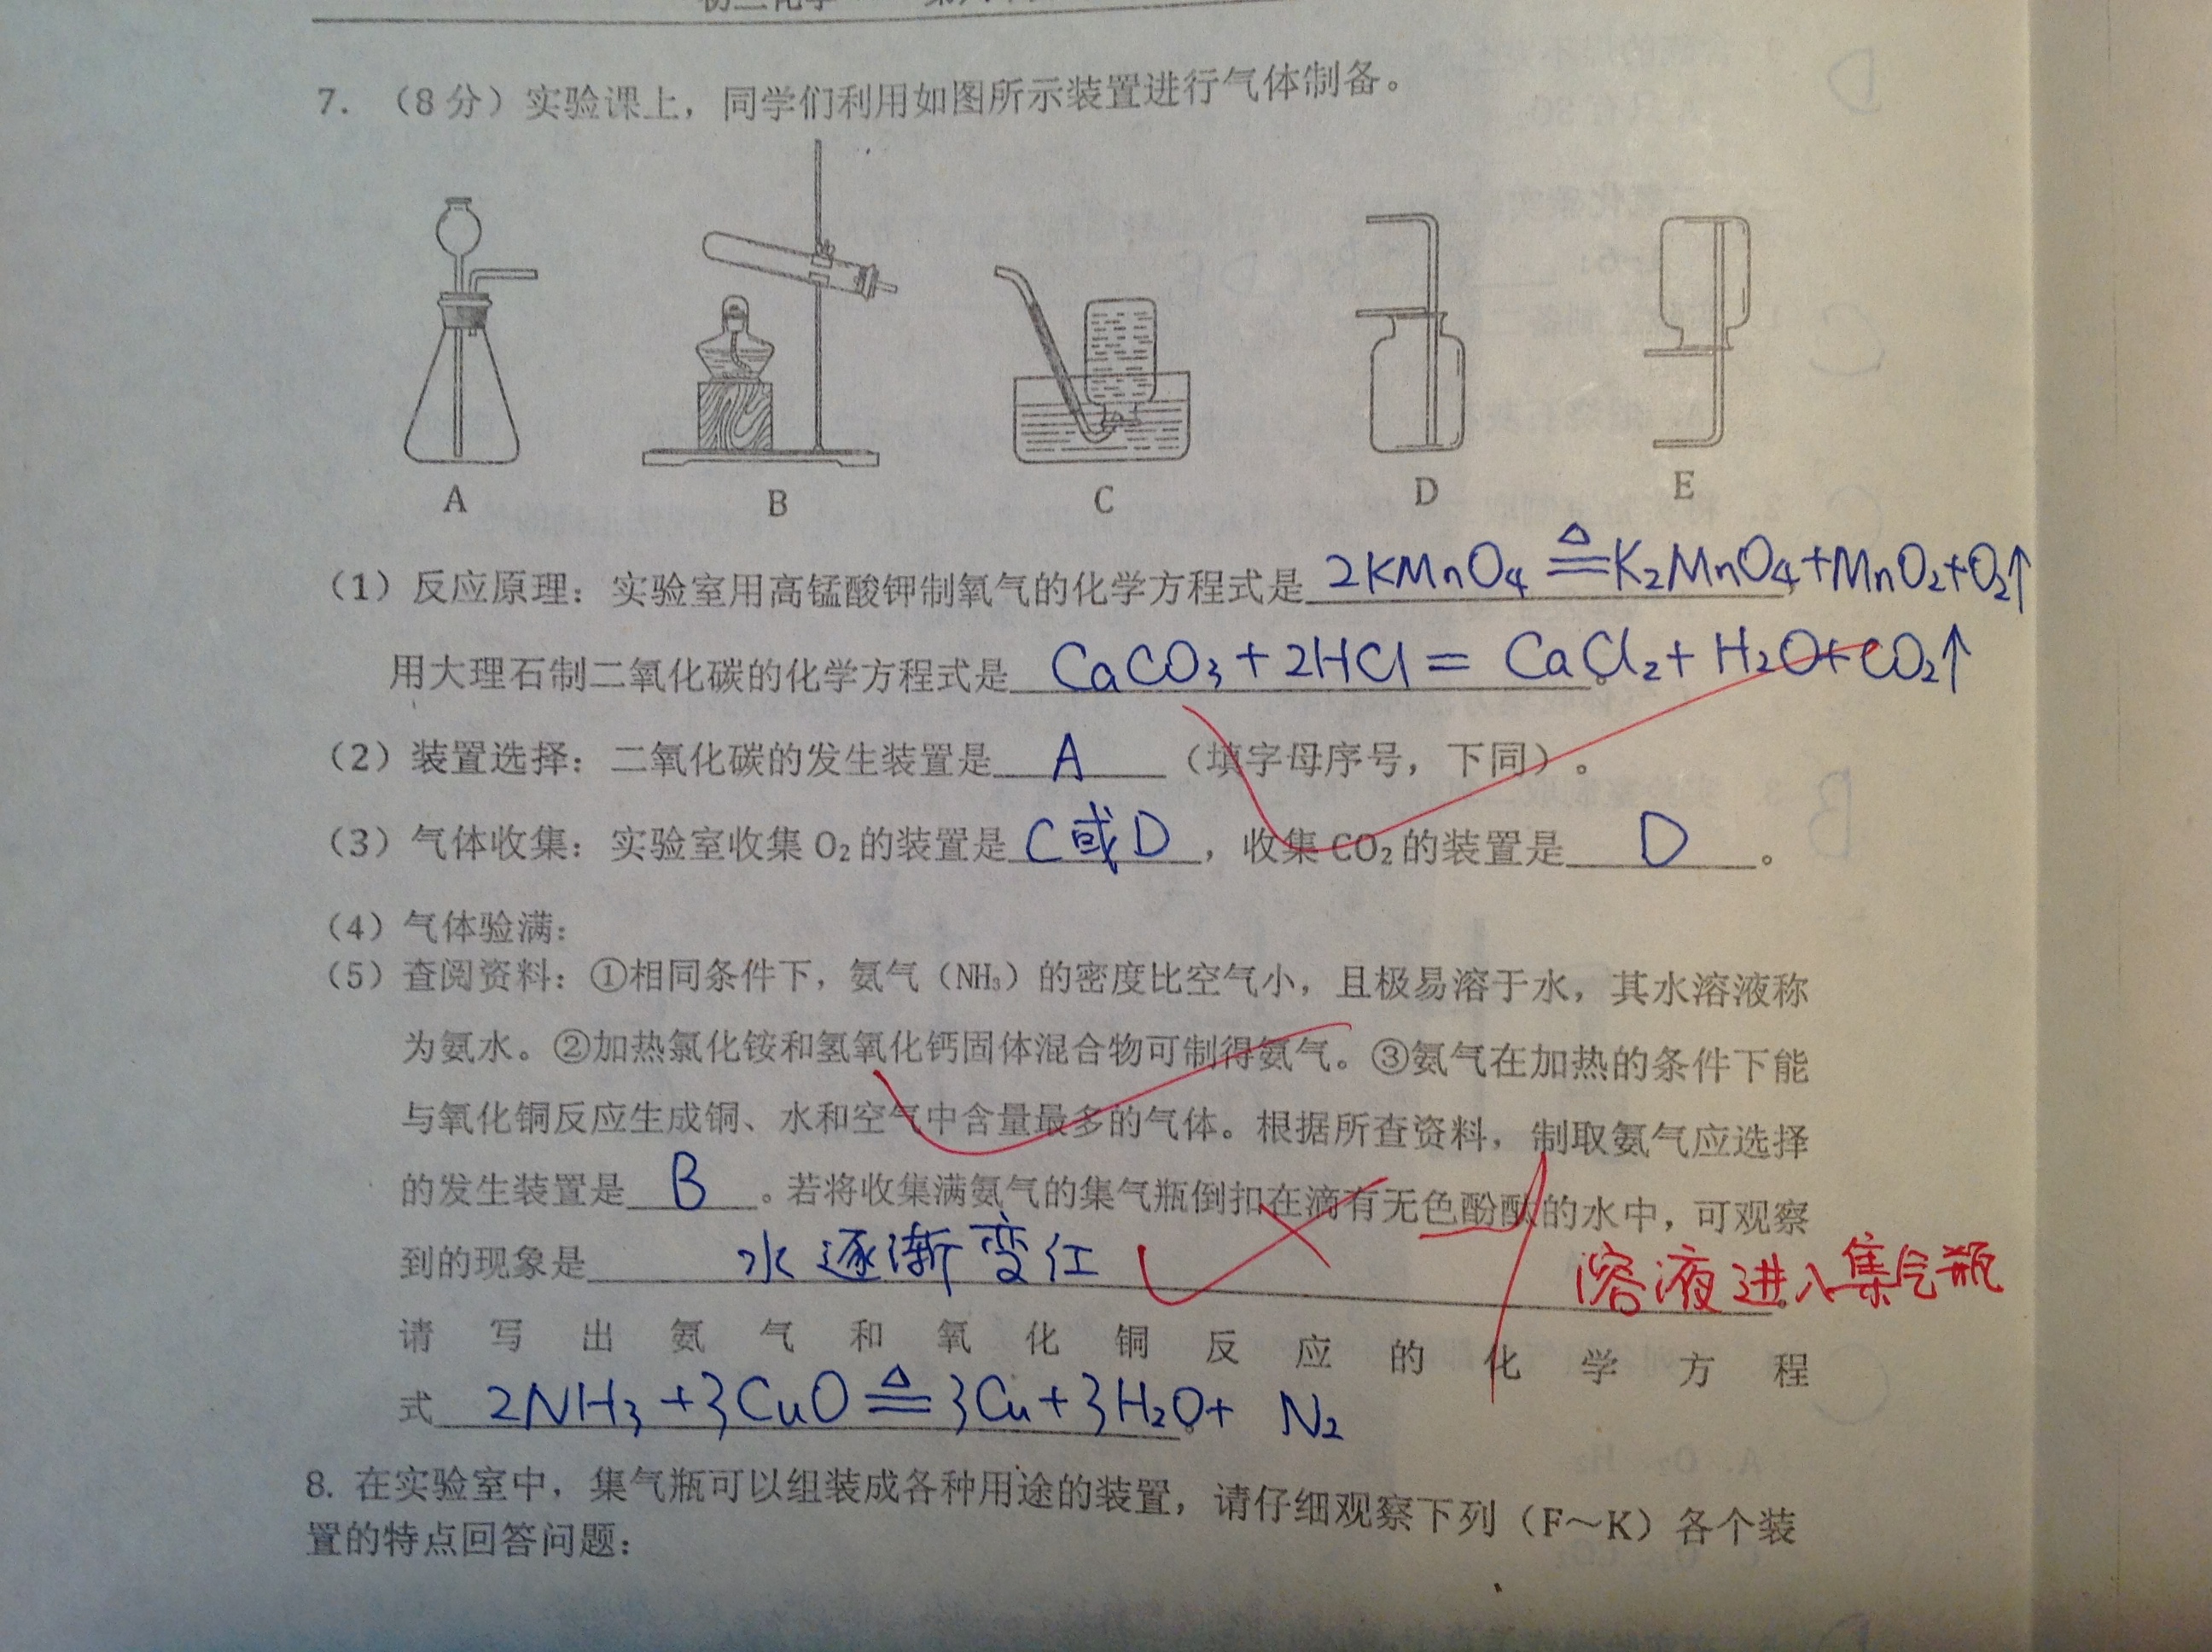 7. （8分）实验课上，同学们利用如图所示装置进行气体制备。
A B C D E
（1）反应原理：实验室用高锰酸钾制氧气的化学方程式是 2KMnO₄ ≜ K₂MnO₄+MnO₂+O₂↑
用大理石制二氧化碳的化学方程式是 CaCO₃+2HCl = CaCl₂+H₂O+CO₂↑。
（2）装置选择：二氧化碳的发生装置是 A （填字母序号，下同）。
（3）气体收集：实验室收集 O₂ 的装置是 C或D ，收集 CO₂ 的装置是 D 。
（4）气体验满：
（5）查阅资料：①相同条件下，氨气（NH₃）的密度比空气小，且极易溶于水，其水溶液称
为氨水。②加热氯化铵和氢氧化钙固体混合物可制得氨气。③氨气在加热的条件下能
与氧化铜反应生成铜、水和空气中含量最多的气体。根据所查资料，制取氨气应选择
的发生装置是 B 。若将收集满氨气的集气瓶倒扣在滴有无色酚酞的水中，可观察
到的现象是 水逐渐变红 溶液进入集气瓶
请写出氨气和氧化铜反应的化学方程
式 2NH₃+3CuO ≜ 3Cu+3H₂O+ N₂
8. 在实验室中，集气瓶可以组装成各种用途的装置，请仔细观察下列（F～K）各个装
置的特点回答问题：